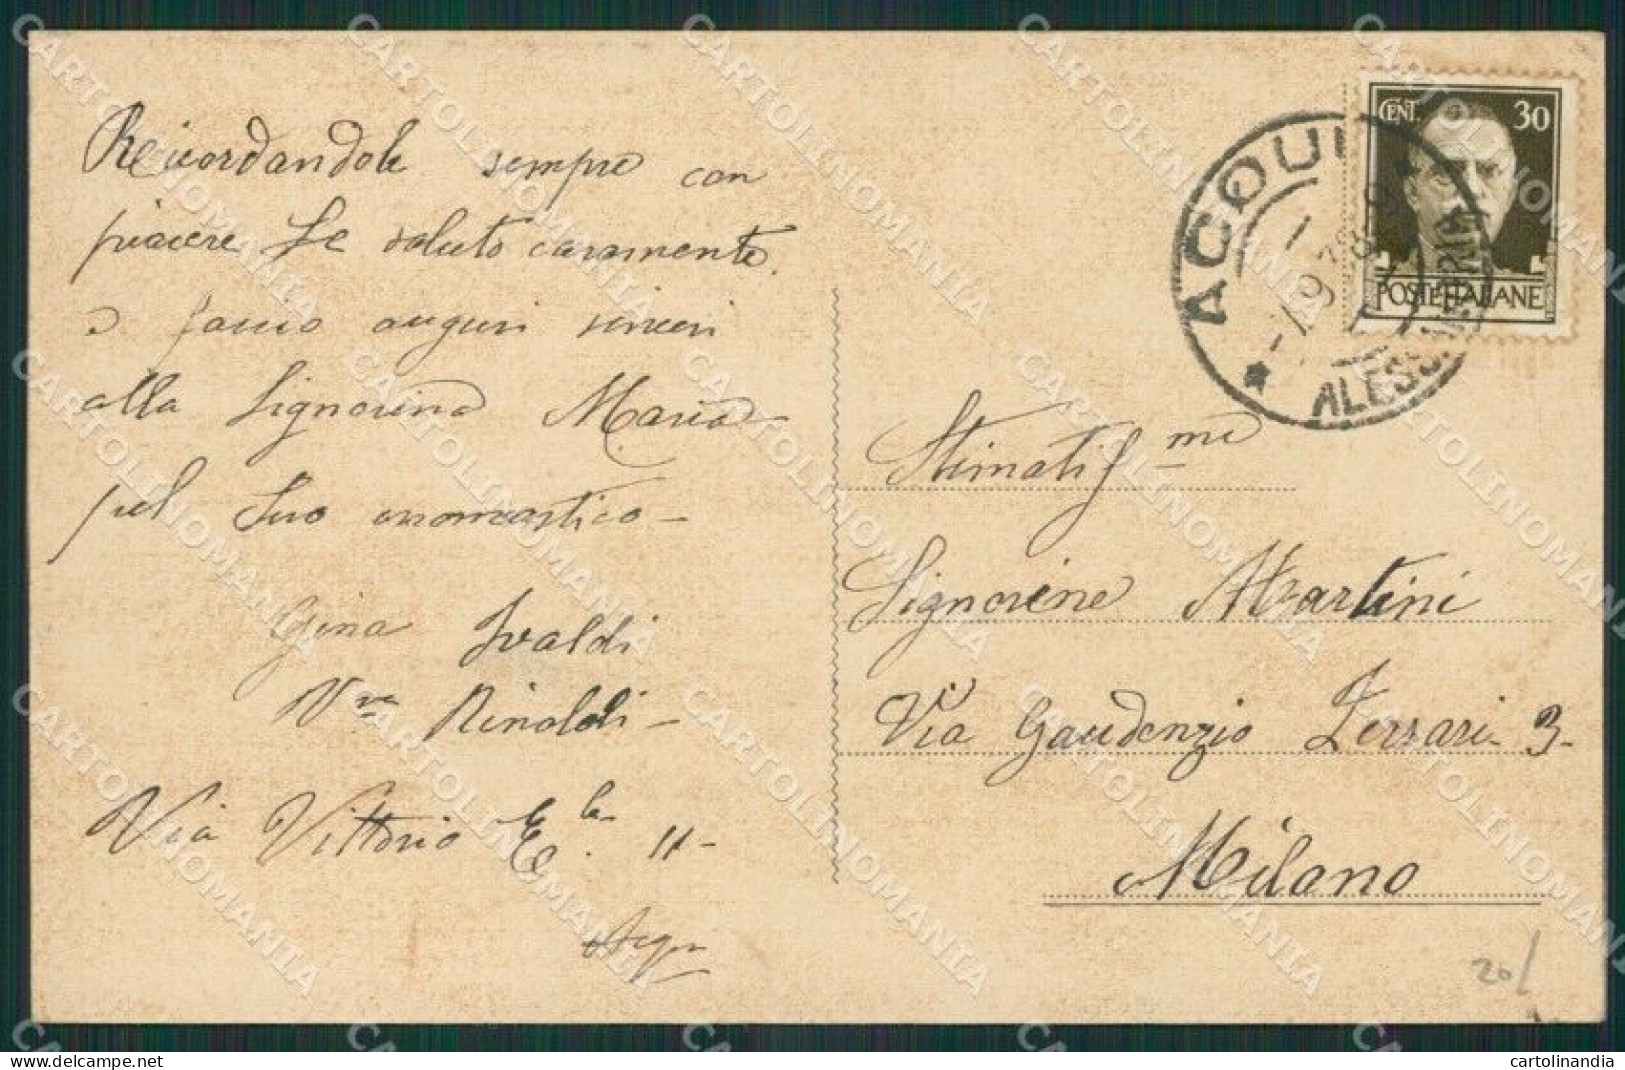 Ricordandole sempre con
piacere Le saluto caramente.
e faccio auguri sinceri
alla Signorina Maria
pel Suo onomastico -
Gina Ivaldi
V.va Rinaldi -
Via Vittorio E.le 11-
Acqui
CENT. 30
POSTE ITALIANE
ACQUI
ALESSANDRIA
Stimatis.me
Signorine Martini
Via Gaudenzio Ferrari 3-
Milano
20/
CARTOLINOMANIA
delcampe.net
cartolinandia